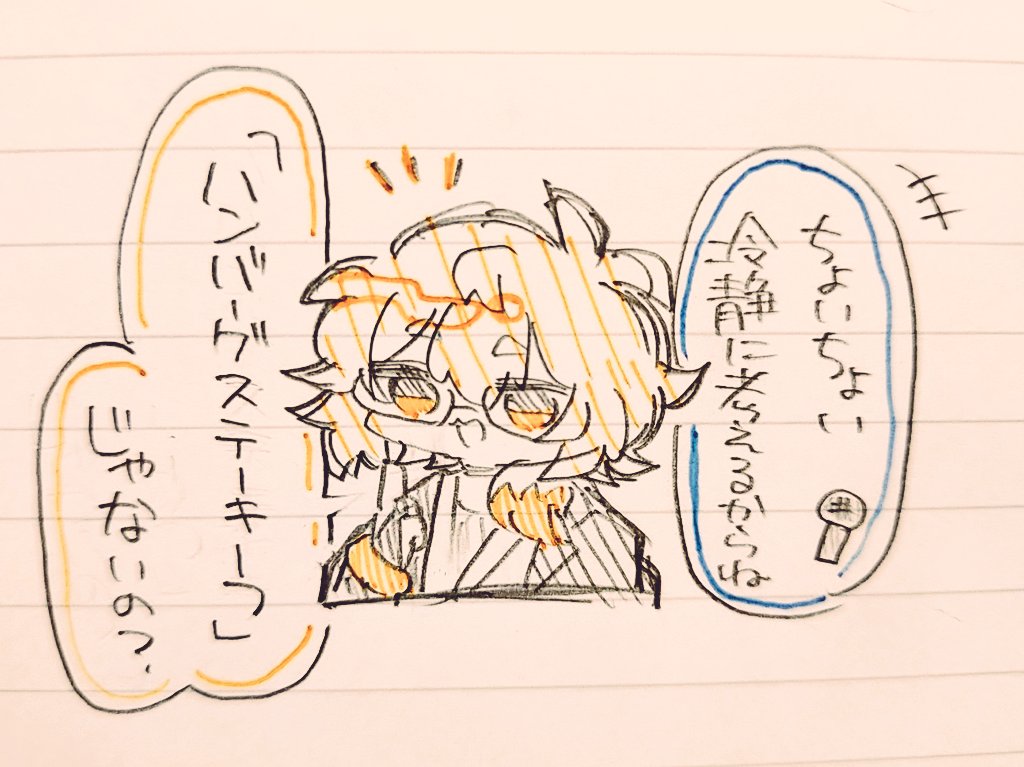 ちょいちょい
冷静に考えるからね
「ハンバーグステーキーっ」
じゃないの?